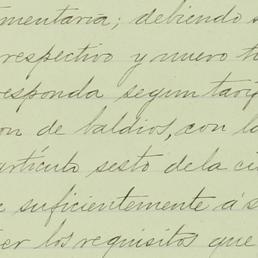 mentaria; debiendo s
respectivo y nuevo t
responda segun tarif
on de baldios, con la
artículo sesto de la ci
e suficientemente á s
er los requisitos que